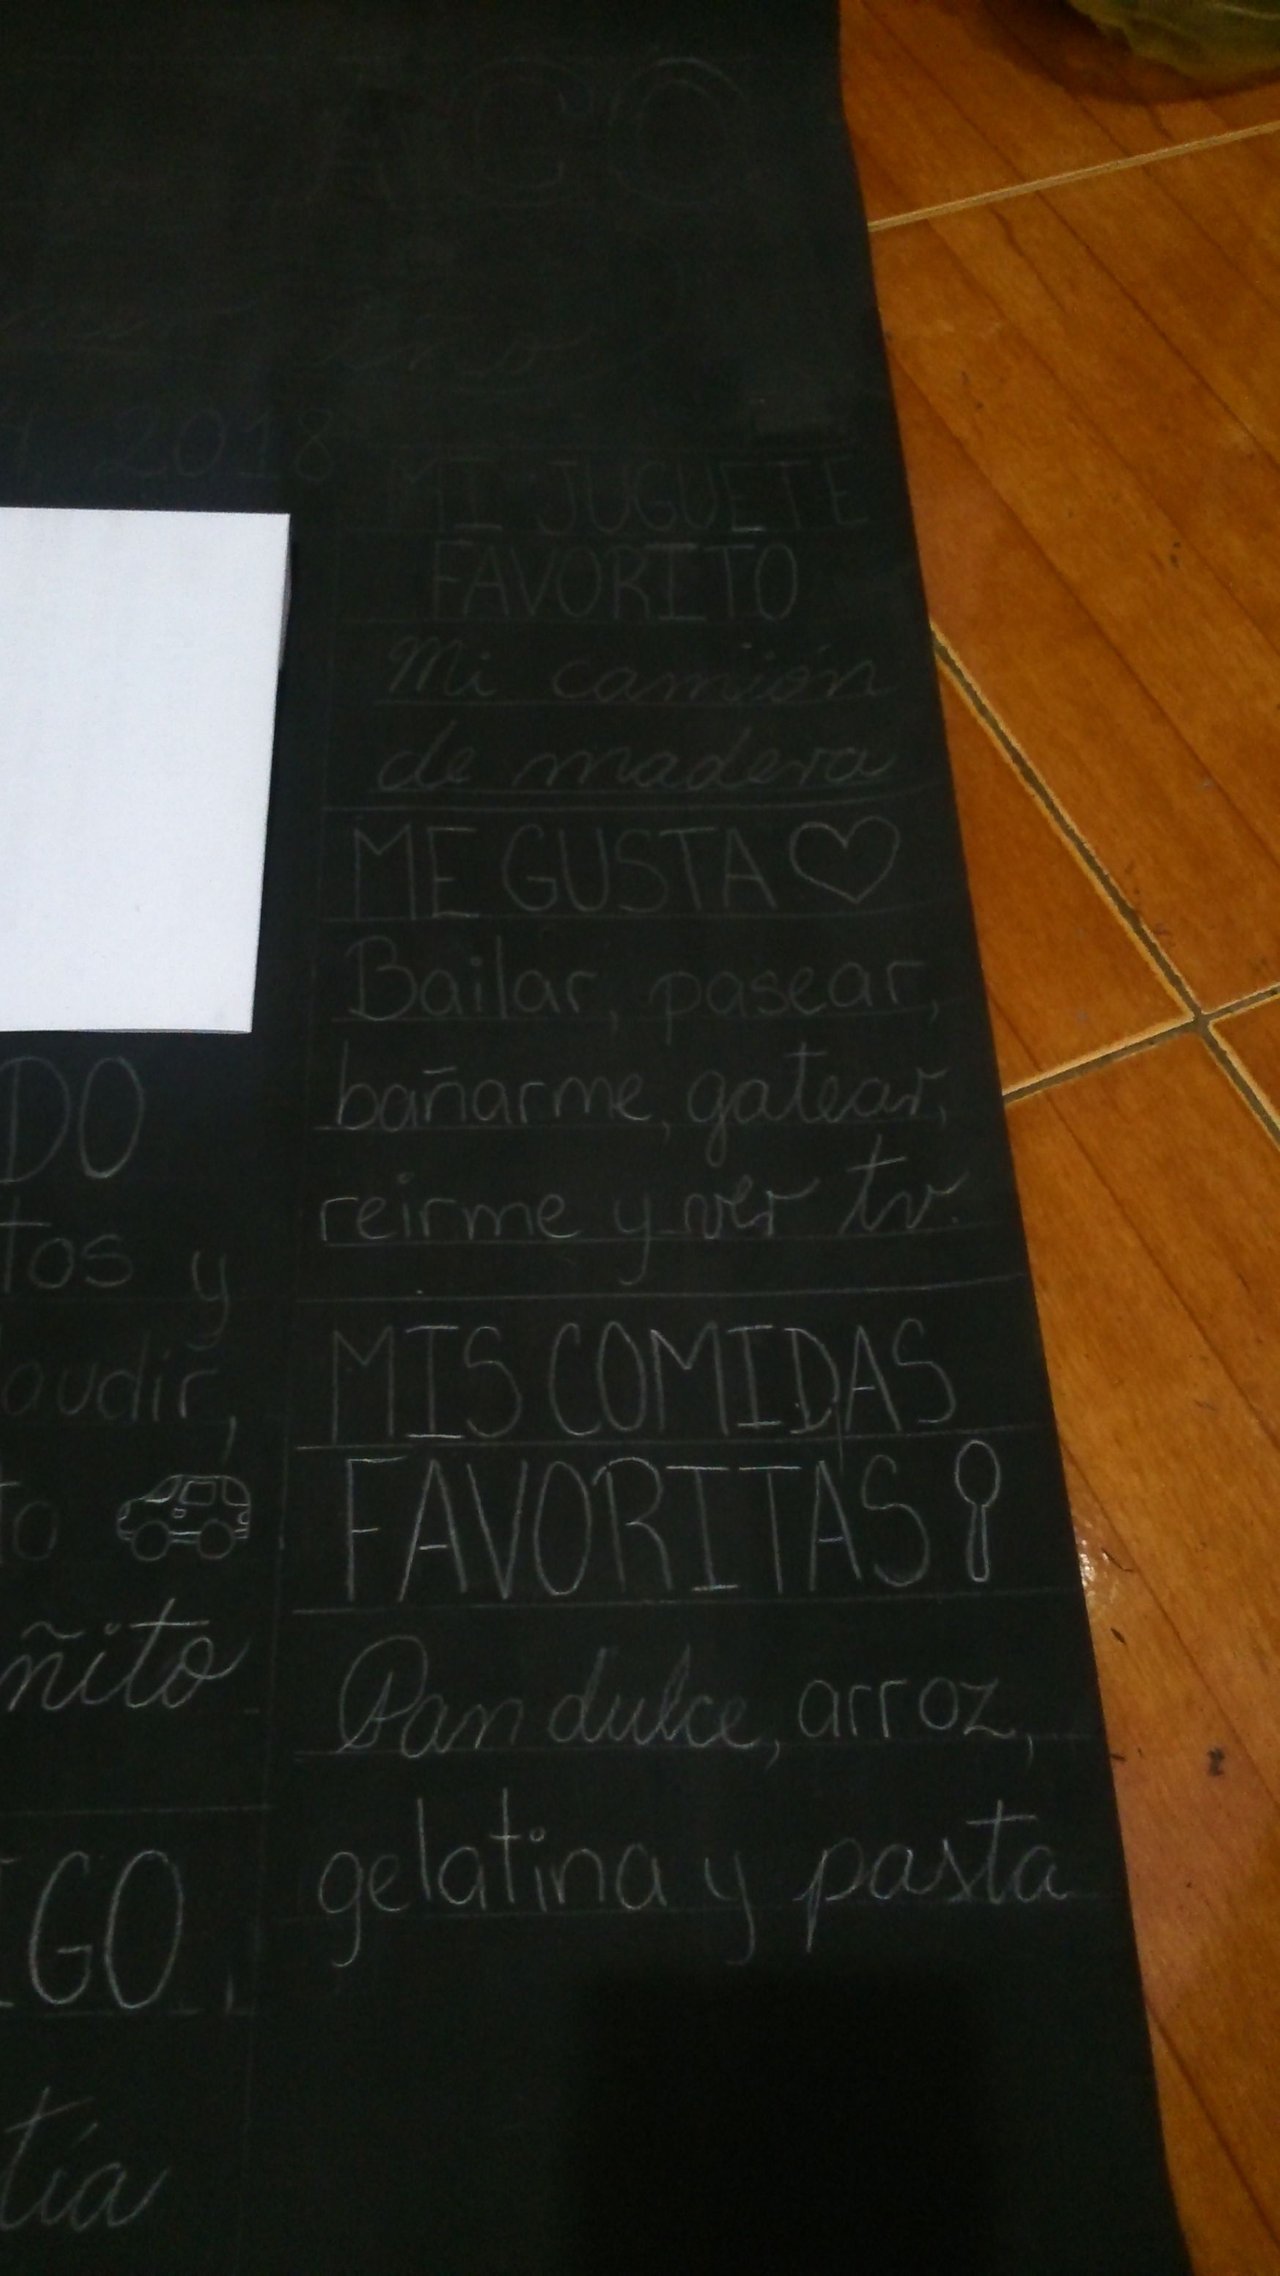 AGO
2018
MI JUGUETE
FAVORITO
Mi camión
de madera
ME GUSTA
Bailar, pasear,
bañarme, gatear,
reirme y ver tv.
MIS COMIDAS
FAVORITAS
Pan dulce, arroz,
gelatina y pasta
DO
tos y
audir,
to
ñito
GO
tía